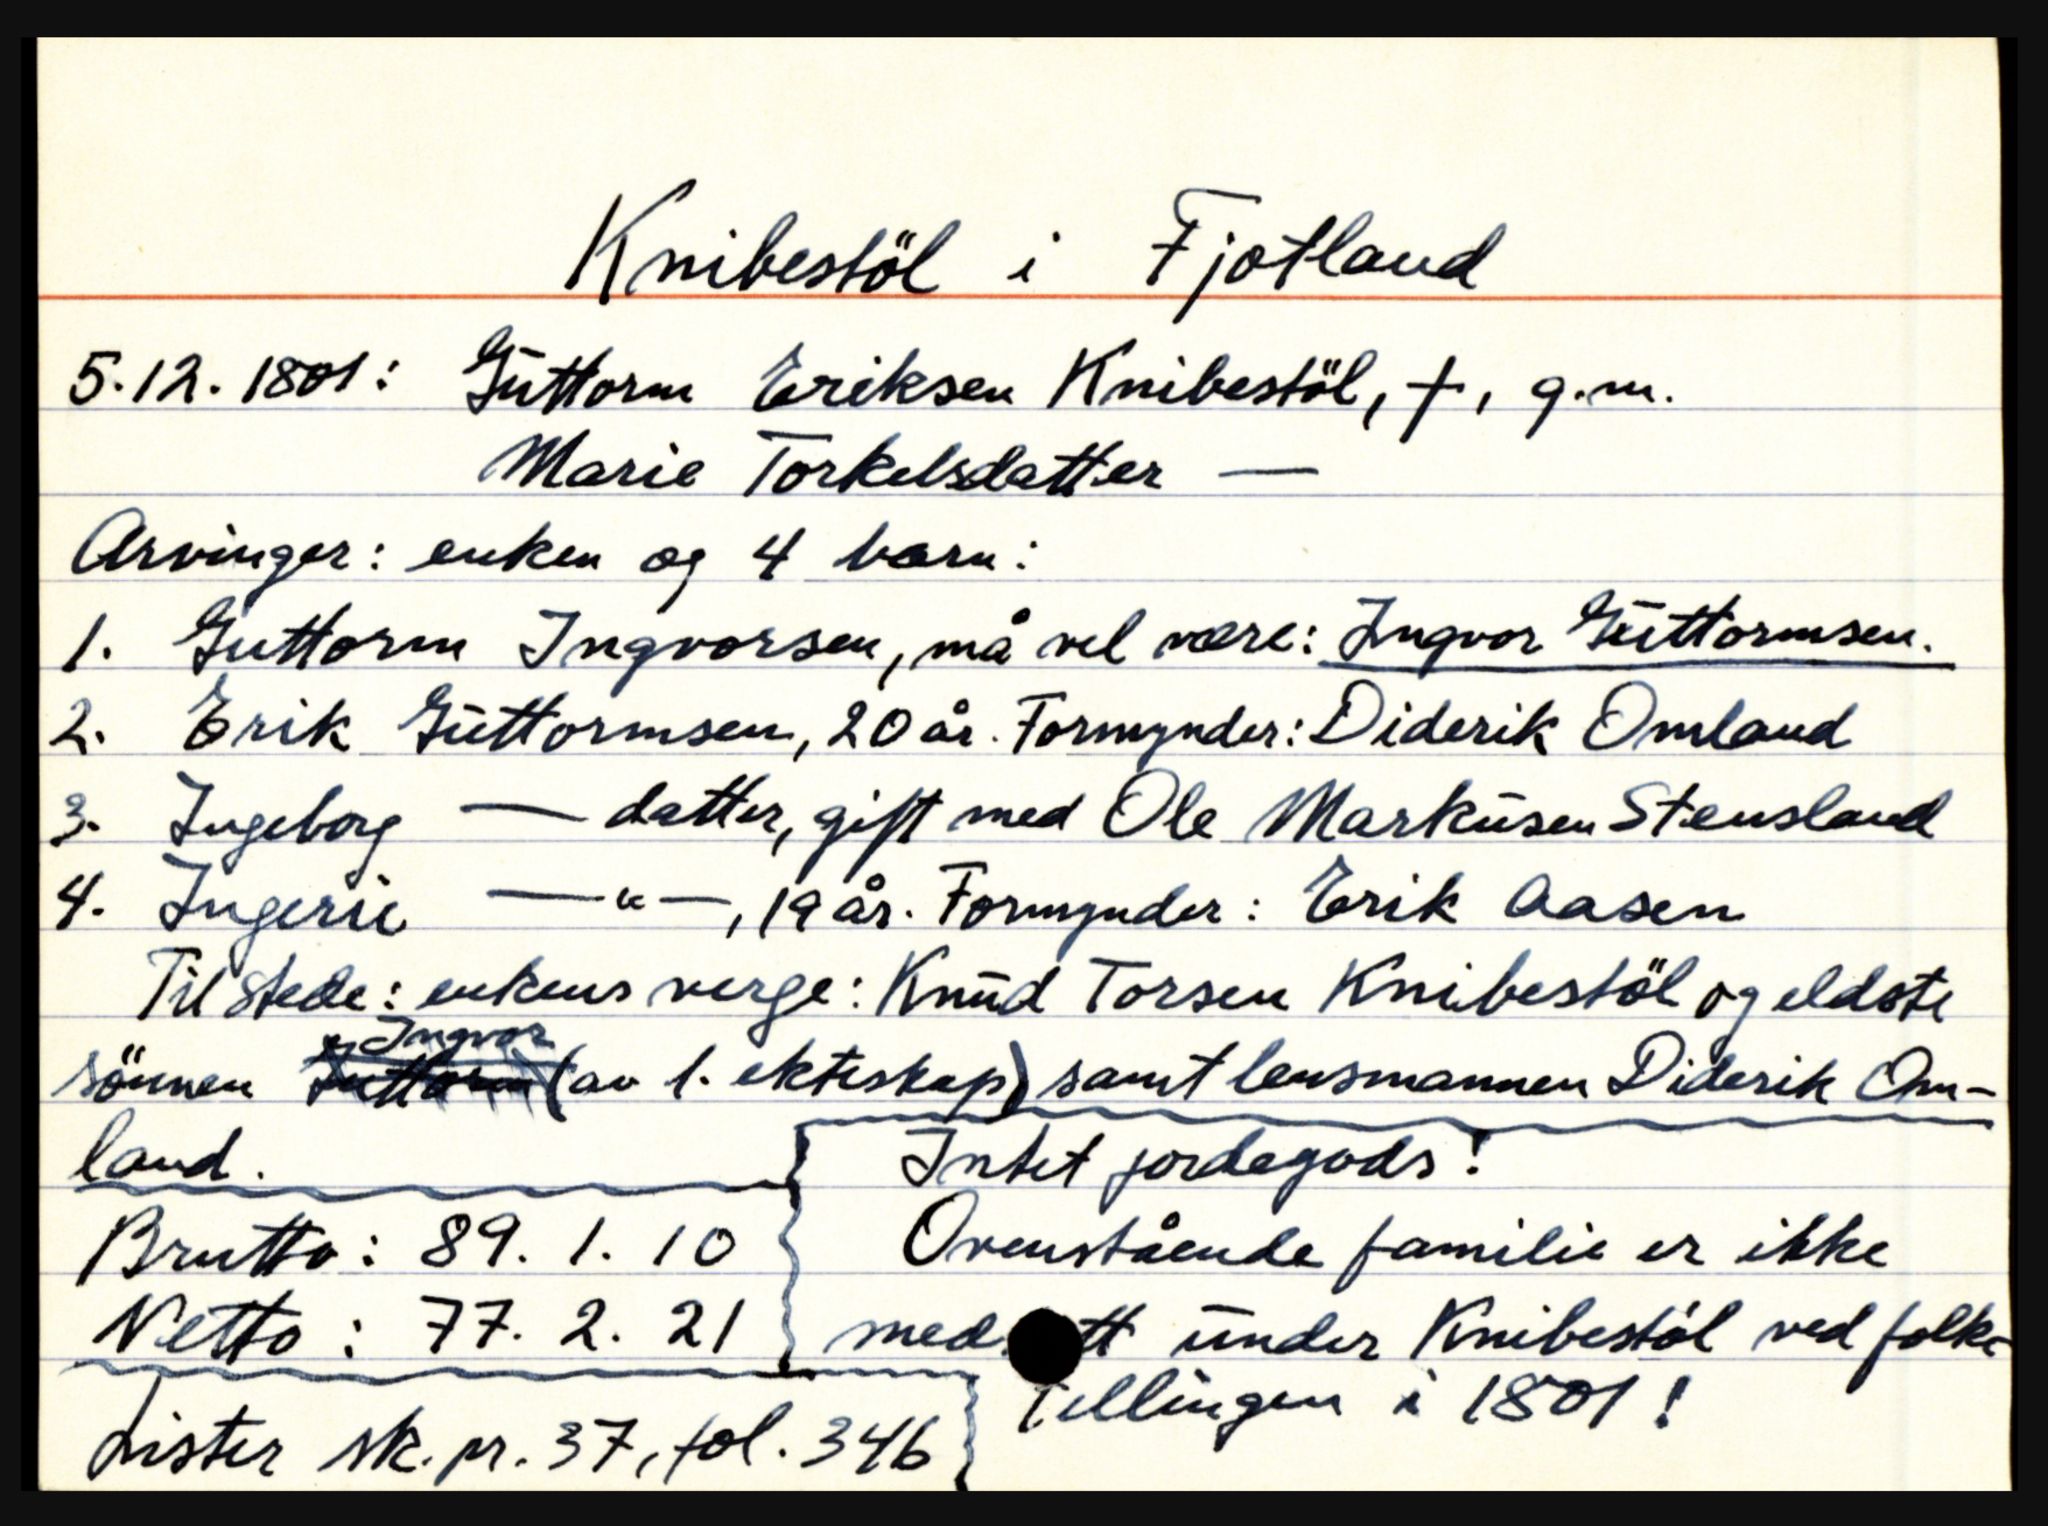 Knibestöl i Fjotland
5.12.1801: Guttorm Eriksen Knibestöl, †, g.m.
Marie Torkelsdatter —
Arvinger: enken og 4 barn:
1. Guttorm Ingvorsen, må vel være: Ingvor Guttormsen.
2. Erik Guttormsen, 20 år. Formynder: Diderik Omland
3. Ingeborg — datter, gift med Ole Markusen Stensland
4. Ingerie —"—, 19 år. Formynder: Erik Aasen
Til stede: enkens verge: Knud Torsen Knibestöl og eldste
Ingvor
sönnen Guttorm (av 1. ekteskap) samt lensmannen Diderik Om-
land.
Brutto: 89. 1. 10
Netto: 77. 2. 21
Lister sk. pr. 37, fol. 346
Intet jordegods!
Ovenstående familie er ikke
med tt under Knibestöl ved folke-
tellingen i 1801!